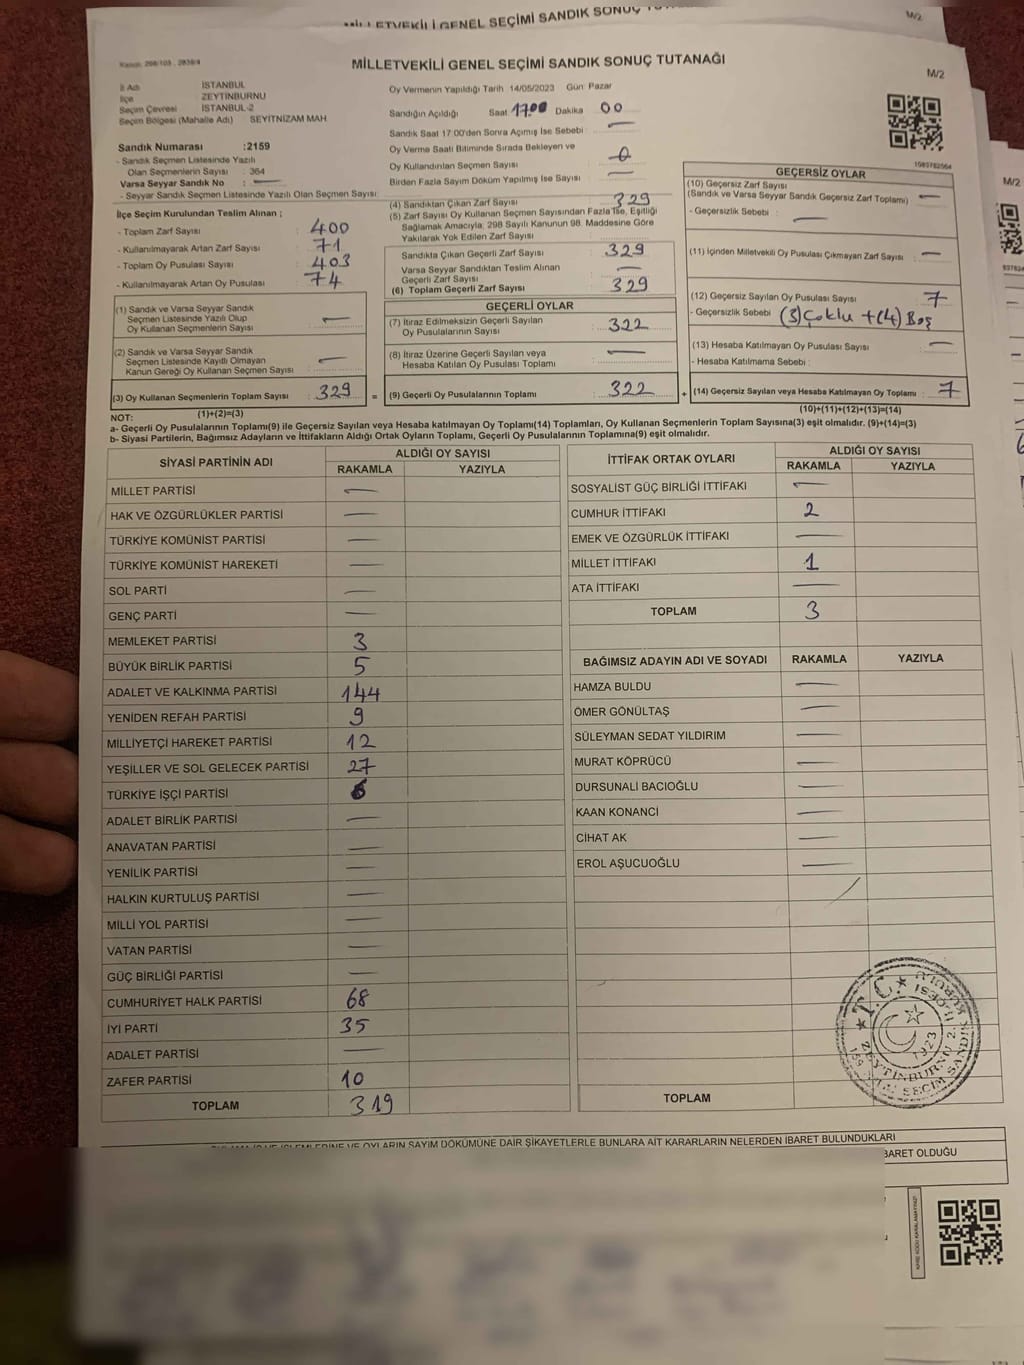 MİLLETVEKİLİ GENEL SEÇİMİ SANDIK SONUÇ
M/2
Kanun: 298/103 , 2839/4
MİLLETVEKİLİ GENEL SEÇİMİ SANDIK SONUÇ TUTANAĞI
M/2
İl Adı İSTANBUL
İlçe ZEYTİNBURNU
Seçim Çevresi İSTANBUL-2
Seçim Bölgesi (Mahalle Adı) SEYİTNİZAM MAH.
Oy Vermenin Yapıldığı Tarih 14/05/2023 Gün: Pazar
Sandığın Açıldığı Saat 17.00 Dakika 00
Sandık Saat 17:00'den Sonra Açmış İse Sebebi : —
Oy Verme Saati Bitiminde Sırada Bekleyen ve
Oy Kullandırılan Seçmen Sayısı : 0
Birden Fazla Sayım Döküm Yapılmış İse Sayısı : —
Sandık Numarası :2159
- Sandık Seçmen Listesinde Yazılı
Olan Seçmenlerin Sayısı : 364
Varsa Seyyar Sandık No : —
- Seyyar Sandık Seçmen Listesinde Yazılı Olan Seçmen Sayısı:
İlçe Seçim Kurulundan Teslim Alınan ;
- Toplam Zarf Sayısı : 400
- Kullanılmayarak Artan Zarf Sayısı : 71
- Toplam Oy Pusulası Sayısı : 403
- Kullanılmayarak Artan Oy Pusulası : 74
(1) Sandık ve Varsa Seyyar Sandık
Seçmen Listesinde Yazılı Olup
Oy Kullanan Seçmenlerin Sayısı : —
(2) Sandık ve Varsa Seyyar Sandık
Seçmen Listesinde Kayıtlı Olmayan
Kanun Gereği Oy Kullanan Seçmen Sayısı : —
(3) Oy Kullanan Seçmenlerin Toplam Sayısı : 329
(1)+(2)=(3)
(4) Sandıktan Çıkan Zarf Sayısı : 329
(5) Zarf Sayısı Oy Kullanan Seçmen Sayısından Fazla İse, Eşitliği
Sağlamak Amacıyla, 298 Sayılı Kanunun 98. Maddesine Göre
Yakılarak Yok Edilen Zarf Sayısı :
Sandıkta Çıkan Geçerli Zarf Sayısı : 329
Varsa Seyyar Sandıktan Teslim Alınan
Geçerli Zarf Sayısı : —
(6) Toplam Geçerli Zarf Sayısı : 329
GEÇERLİ OYLAR
(7) İtiraz Edilmeksizin Geçerli Sayılan
Oy Pusulalarının Sayısı : 322
(8) İtiraz Üzerine Geçerli Sayılan veya
Hesaba Katılan Oy Pusulası Toplamı : —
= (9) Geçerli Oy Pusulalarının Toplamı : 322 +
1083782564
GEÇERSİZ OYLAR
(10) Geçersiz Zarf Sayısı
(Sandık ve Varsa Seyyar Sandık Geçersiz Zarf Toplamı) : —
- Geçersizlik Sebebi : —
(11) İçinden Milletvekili Oy Pusulası Çıkmayan Zarf Sayısı : —
(12) Geçersiz Sayılan Oy Pusulası Sayısı : 7
- Geçersizlik Sebebi : (3)Çoklu +(4) Boş
(13) Hesaba Katılmayan Oy Pusulası Sayısı : —
- Hesaba Katılmama Sebebi :
(14) Geçersiz Sayılan veya Hesaba Katılmayan Oy Toplamı : 7
(10)+(11)+(12)+(13)=(14)
NOT:
a- Geçerli Oy Pusulalarının Toplamı(9) ile Geçersiz Sayılan veya Hesaba katılmayan Oy Toplamı(14) Toplamları, Oy Kullanan Seçmenlerin Toplam Sayısına(3) eşit olmalıdır. (9)+(14)=(3)
b- Siyasi Partilerin, Bağımsız Adayların ve İttifakların Aldığı Ortak Oyların Toplamı, Geçerli Oy Pusulalarının Toplamına(9) eşit olmalıdır.
SİYASİ PARTİNİN ADI ALDIĞI OY SAYISI
RAKAMLA YAZIYLA
MİLLET PARTİSİ —
HAK VE ÖZGÜRLÜKLER PARTİSİ —
TÜRKİYE KOMÜNİST PARTİSİ —
TÜRKİYE KOMÜNİST HAREKETİ —
SOL PARTİ —
GENÇ PARTİ —
MEMLEKET PARTİSİ 3
BÜYÜK BİRLİK PARTİSİ 5
ADALET VE KALKINMA PARTİSİ 144
YENİDEN REFAH PARTİSİ 9
MİLLİYETÇİ HAREKET PARTİSİ 12
YEŞİLLER VE SOL GELECEK PARTİSİ 27
TÜRKİYE İŞÇİ PARTİSİ 6
ADALET BİRLİK PARTİSİ —
ANAVATAN PARTİSİ —
YENİLİK PARTİSİ —
HALKIN KURTULUŞ PARTİSİ —
MİLLİ YOL PARTİSİ —
VATAN PARTİSİ —
GÜÇ BİRLİĞİ PARTİSİ —
CUMHURİYET HALK PARTİSİ 68
İYİ PARTİ 35
ADALET PARTİSİ —
ZAFER PARTİSİ 10
TOPLAM 319
İTTİFAK ORTAK OYLARI ALDIĞI OY SAYISI
RAKAMLA YAZIYLA
SOSYALİST GÜÇ BİRLİĞİ İTTİFAKI —
CUMHUR İTTİFAKI 2
EMEK VE ÖZGÜRLÜK İTTİFAKI —
MİLLET İTTİFAKI 1
ATA İTTİFAKI —
TOPLAM 3
BAĞIMSIZ ADAYIN ADI VE SOYADI RAKAMLA YAZIYLA
HAMZA BULDU —
ÖMER GÖNÜLTAŞ —
SÜLEYMAN SEDAT YILDIRIM —
MURAT KÖPRÜCÜ —
DURSUNALİ BACIOĞLU —
KAAN KONANCİ —
CİHAT AK —
EROL AŞUCUOĞLU —
TOPLAM
T.C.
ZEYTİNBURNU 2. İLÇESİ
SEÇİM SANDIK KURULU
1923
OYLARIN SAYIM DÖKÜMÜNE DAİR ŞİKAYETLERLE BUNLARA AİT KARARLARIN NELERDEN İBARET BULUNDUKLARI
BARET OLDUĞU
M/2